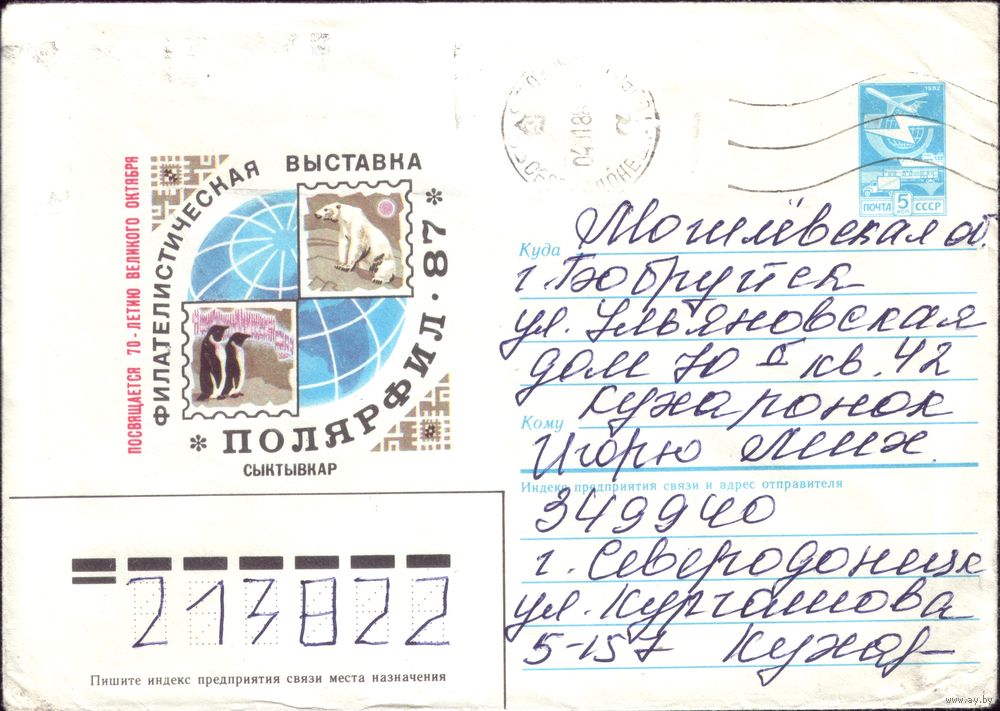 ПОСВЯЩАЕТСЯ 70-ЛЕТИЮ ВЕЛИКОГО ОКТЯБРЯ
ФИЛАТЕЛИСТИЧЕСКАЯ ВЫСТАВКА
* ПОЛЯРФИЛ · 87 *
СЫКТЫВКАР
1982
ПОЧТА 5 КОП СССР
Куда Могилёвская об.
г. Бобруйск
ул. Ульяновская
дом 70 кв. 42
Кухаронок
Кому
Игорю Мих.
Индекс предприятия связи и адрес отправителя
349940
г. Северодонецк
ул.
5-157 Кухар
213822
Пишите индекс предприятия связи места назначения
www.ay.by